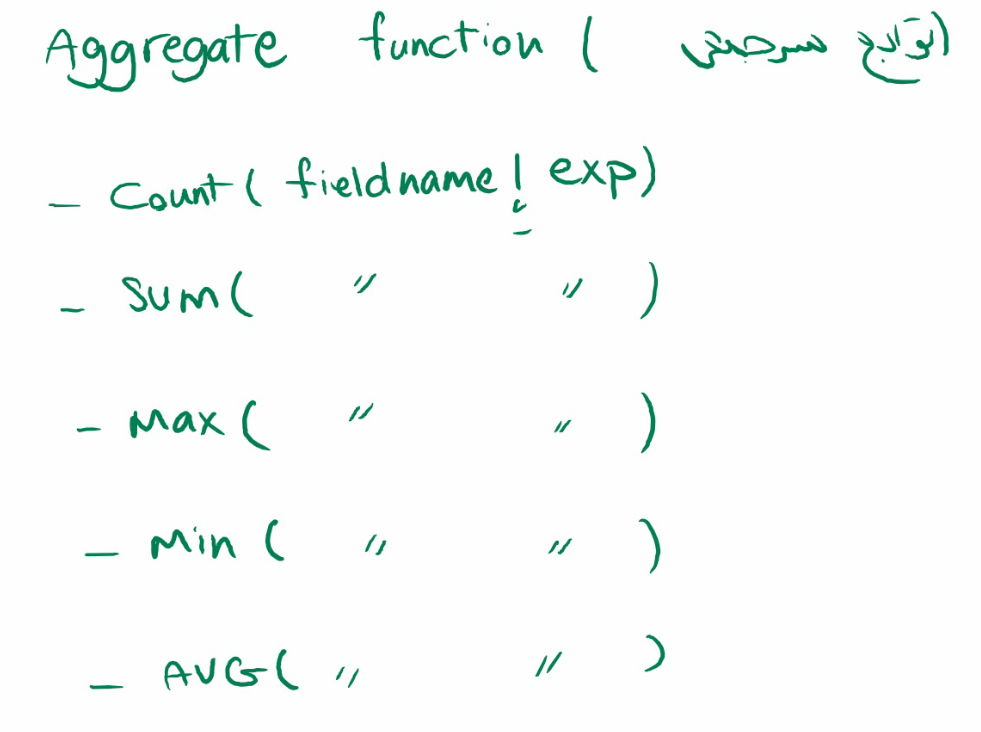 Aggregate function ( توابع سرجمعی)
- Count( fieldname یا exp)
- Sum( " " )
- Max( " " )
- Min( " " )
- AVG( " " )